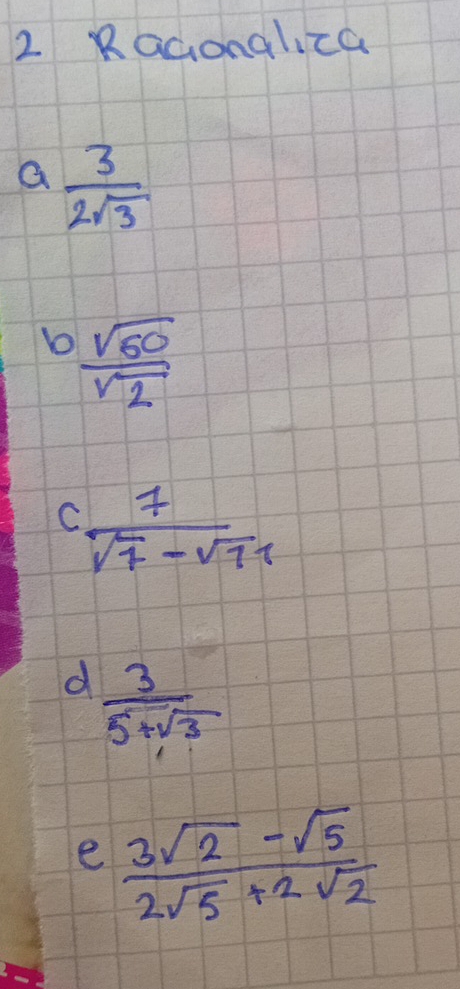 2 Racionaliza
a 3
2√3
b √50
√2
c 7
√7 - √11
d 3
5+√3
e 3√2 - √5
2√5 + 2√2